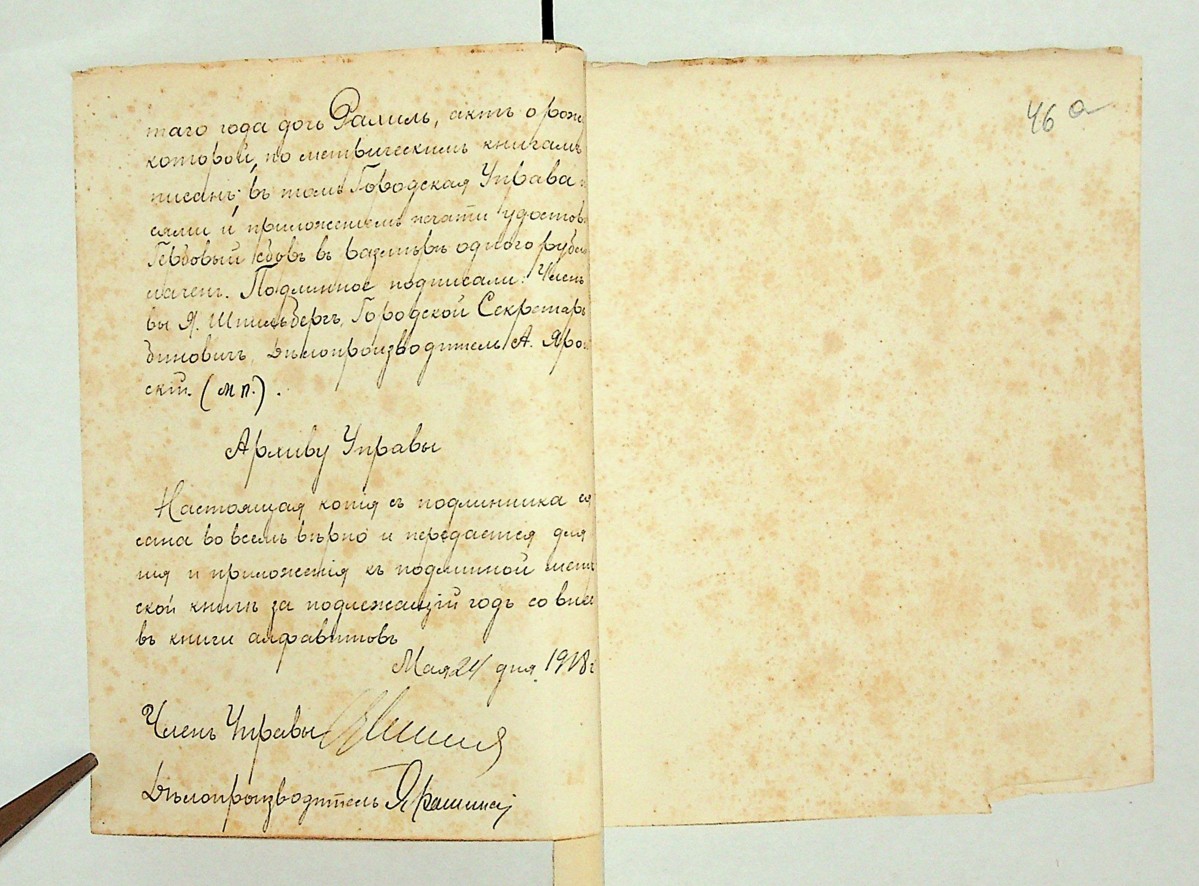 таго года дочь Рахиль, актъ о рож
которой, по метрическимъ книгамъ
писанъ; въ томъ Городская Управа
сями и приложеніемъ печати удостов
Гербовый сборъ въ размѣрѣ одного рубл
лаченъ. Подлинное подписали: Членъ
вы Я. Штильбергъ, Городской Секретарь
биновичъ, Дѣлопроизводитель А. Яро
скій. (м.п.).
Архиву Управы
Настоящая копія съ подлинника
сана во всемъ вѣрно и передается для
нія и приложенія къ подлинной мет
ской книгѣ за подлежащій годъ со вне
въ книги алфавитовъ
Мая 24 дня 1918 г
Членъ Управы
Дѣлопроизводитель
46 а